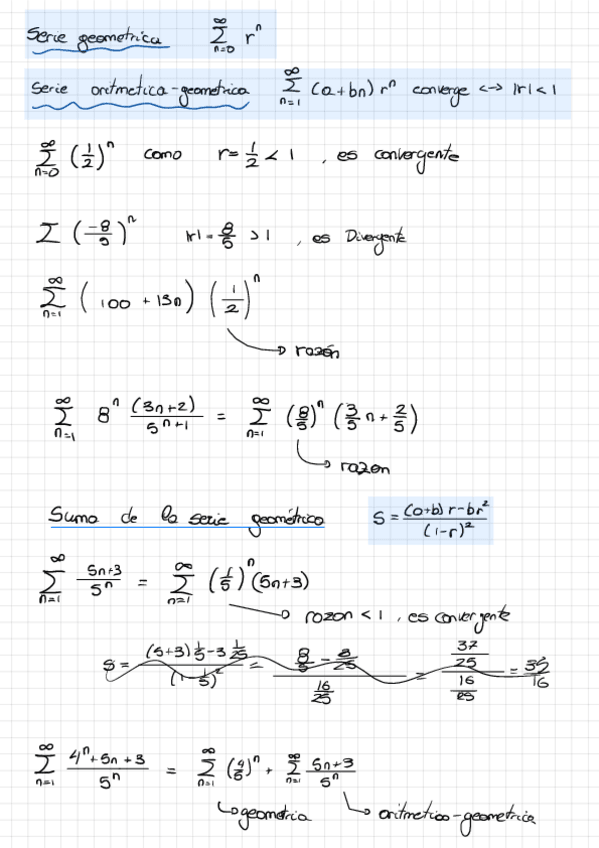 Serie geometrica ∞ Σ n=0 r^n
Serie aritmetica-geometrica ∞ Σ n=1 (a+bn) r^n converge <-> |r| < 1
∞ Σ n=0 (1/2)^n como r = 1/2 < 1 , es convergente
Σ (-8/5)^n |r| = 8/5 > 1 , es Divergente
∞ Σ n=1 (100 + 13n) (1/2)^n
razón
∞ Σ n=1 8^n (3n+2)/5^(n+1) = ∞ Σ n=1 (8/5)^n (3/5 n + 2/5)
razon
Suma de la serie geométrica S = ((a+b) r - br^2)/(1-r)^2
∞ Σ n=1 (5n+3)/5^n = ∞ Σ n=1 (1/5)^n (5n+3)
razon < 1 , es convergente
∞ Σ n=1 (4^n + 5n + 3)/5^n = ∞ Σ n=1 (4/5)^n + ∞ Σ n=1 (5n+3)/5^n
geometria aritmetico-geometrica